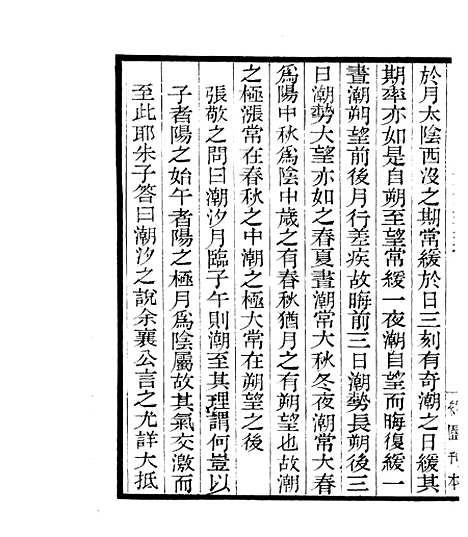 於月太陰西沒之期常緩於日三刻有奇潮之日緩其
期率亦如是自朔至望常緩一夜潮自望而晦復緩一
晝潮朔望前後月行差疾故晦前三日潮勢長朔後三
日潮勢大望亦如之春夏晝潮常大秋冬夜潮常大春
爲陽中秋爲陰中歲之有春秋猶月之有朔望也故潮
之極漲常在春秋之中潮之極大常在朔望之後
張敬之問曰潮汐月臨子午則潮至其理謂何豈以
子者陽之始午者陽之極月爲陰屬故其氣交激而
至此耶朱子答曰潮汐之說余襄公言之尤詳大抵